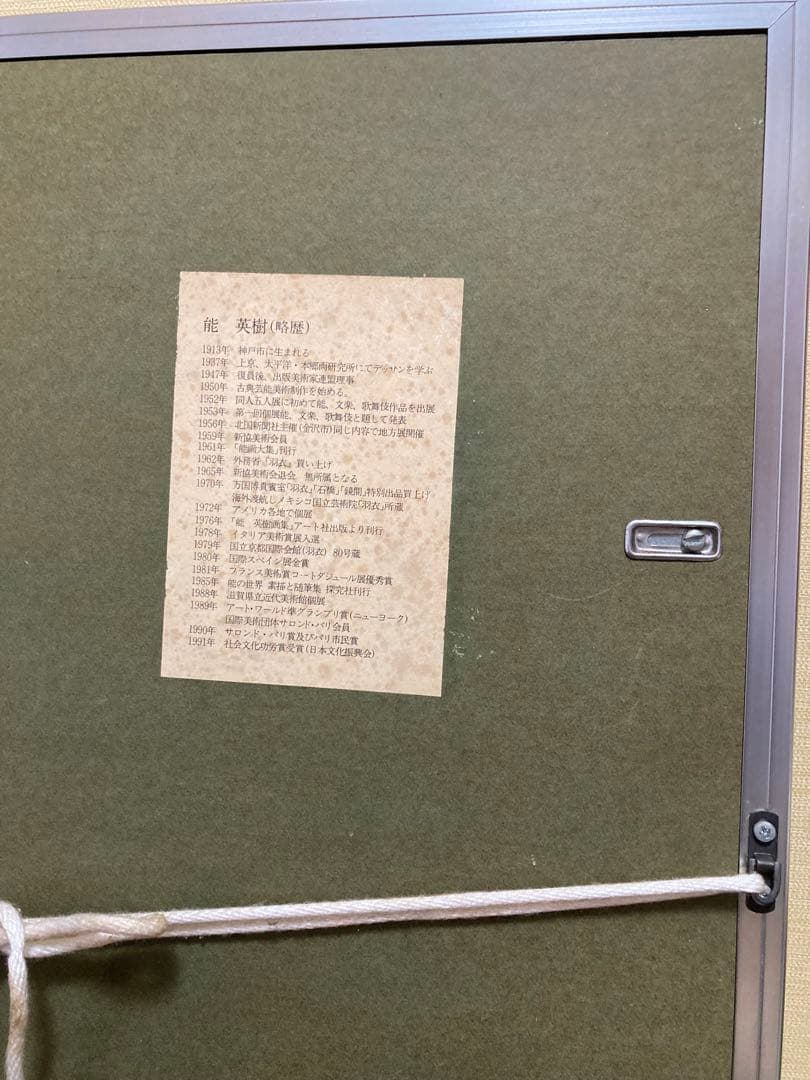 能　英樹(略歴)
1913年　神戸市に生まれる
1937年　上京、太平洋・本郷画研究所にてデッサンを学ぶ
1947年　復員後、出版美術家連盟理事
1950年　古典芸能美術制作を始める。
1952年　同人五人展に初めて能、文楽、歌舞伎作品を出展
1953年　第一回個展能、文楽、歌舞伎と題して発表
1956年　北国新聞社主催(金沢市)同じ内容で地方展開催
1959年　新協美術会員
1961年　「能画大集」刊行
1962年　外務省『羽衣』買い上げ
1965年　新協美術会退会　無所属となる
1970年　万国博貴賓室「羽衣」「石橋」「鏡間」特別出品買上げ
海外渡航しメキシコ国立芸術院「羽衣」所蔵
1972年　アメリカ各地で個展
1976年　「能　英樹画集」アート社出版より刊行
1978年　イタリア美術賞展入選
1979年　国立京都国際会館(羽衣) 80号蔵
1980年　国際スペイン展金賞
1981年　フランス美術賞コートダジュール展優秀賞
1985年　能の世界 素描と随筆集 探究社刊行
1988年　滋賀県立近代美術館個展
1989年　アート・ワールド準グランプリ賞(ニューヨーク)
国際美術団体サロンド・パリ会員
1990年　サロンド・パリ賞及びパリ市民賞
1991年　社会文化功労賞受賞(日本文化振興会)